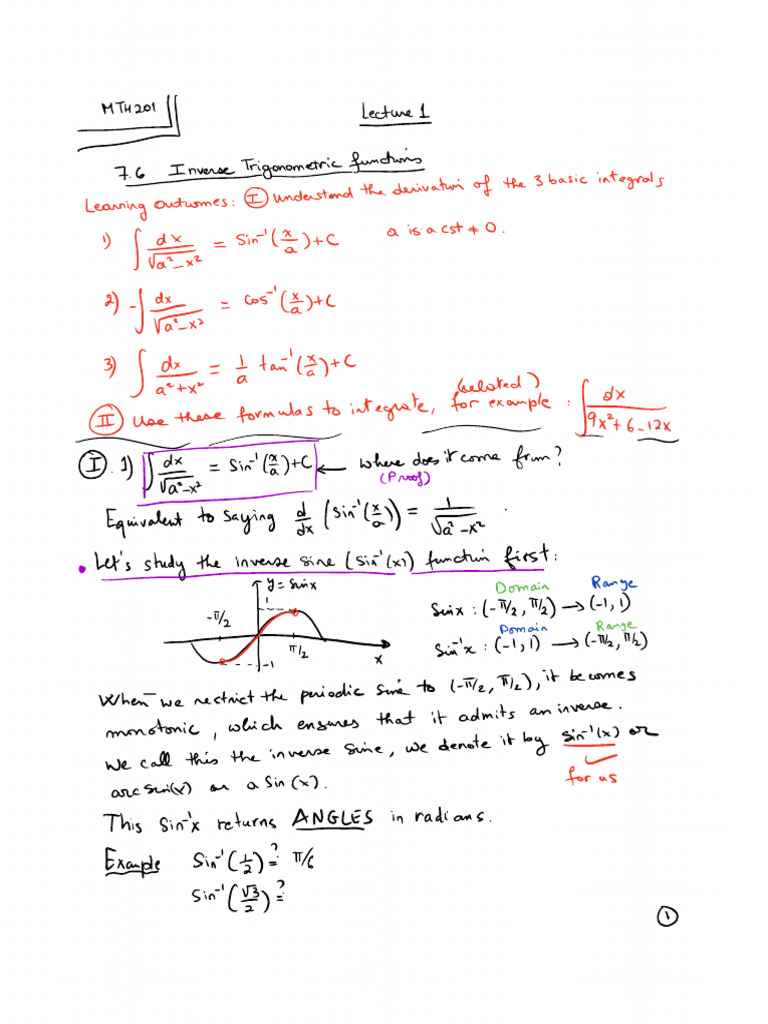 MTH201
Lecture 1
7.6 Inverse Trigonometric functions
Learning Outcomes: Ⓘ understand the derivation of the 3 basic integrals
1) ∫ dx/√(a²-x²) = Sin⁻¹(x/a)+C a is a cst ≠ 0.
2) -∫ dx/√(a²-x²) = Cos⁻¹(x/a)+C
3) ∫ dx/(a²+x²) = 1/a tan⁻¹(x/a)+C
(related)
Ⓘ Ⓘ Use these formulas to integrate, for example : ∫ dx/(9x²+6-12x)
Ⓘ. 1) ∫ dx/√(a²-x²) = Sin⁻¹(x/a)+C ← where does it come from?
(Proof)
Equivalent to saying d/dx (Sin⁻¹(x/a)) = 1/√(a²-x²) .
• Let's study the inverse sine (Sin⁻¹(x)) function first:
y = sin x
1
-π/2
π/2
-1
x
Domain Range
Sinx : (-π/2, π/2) → (-1, 1)
Domain Range
Sin⁻¹x : (-1, 1) → (-π/2, π/2)
When we restrict the periodic sine to (-π/2, π/2), it becomes
monotonic, which ensures that it admits an inverse.
We call this the inverse sine, we denote it by sin⁻¹(x) or
arcsin(x) or asin(x).
for us
This Sin⁻¹x returns ANGLES in radians.
Example Sin⁻¹(1/2) =? π/6
Sin⁻¹(√3/2) =?
①